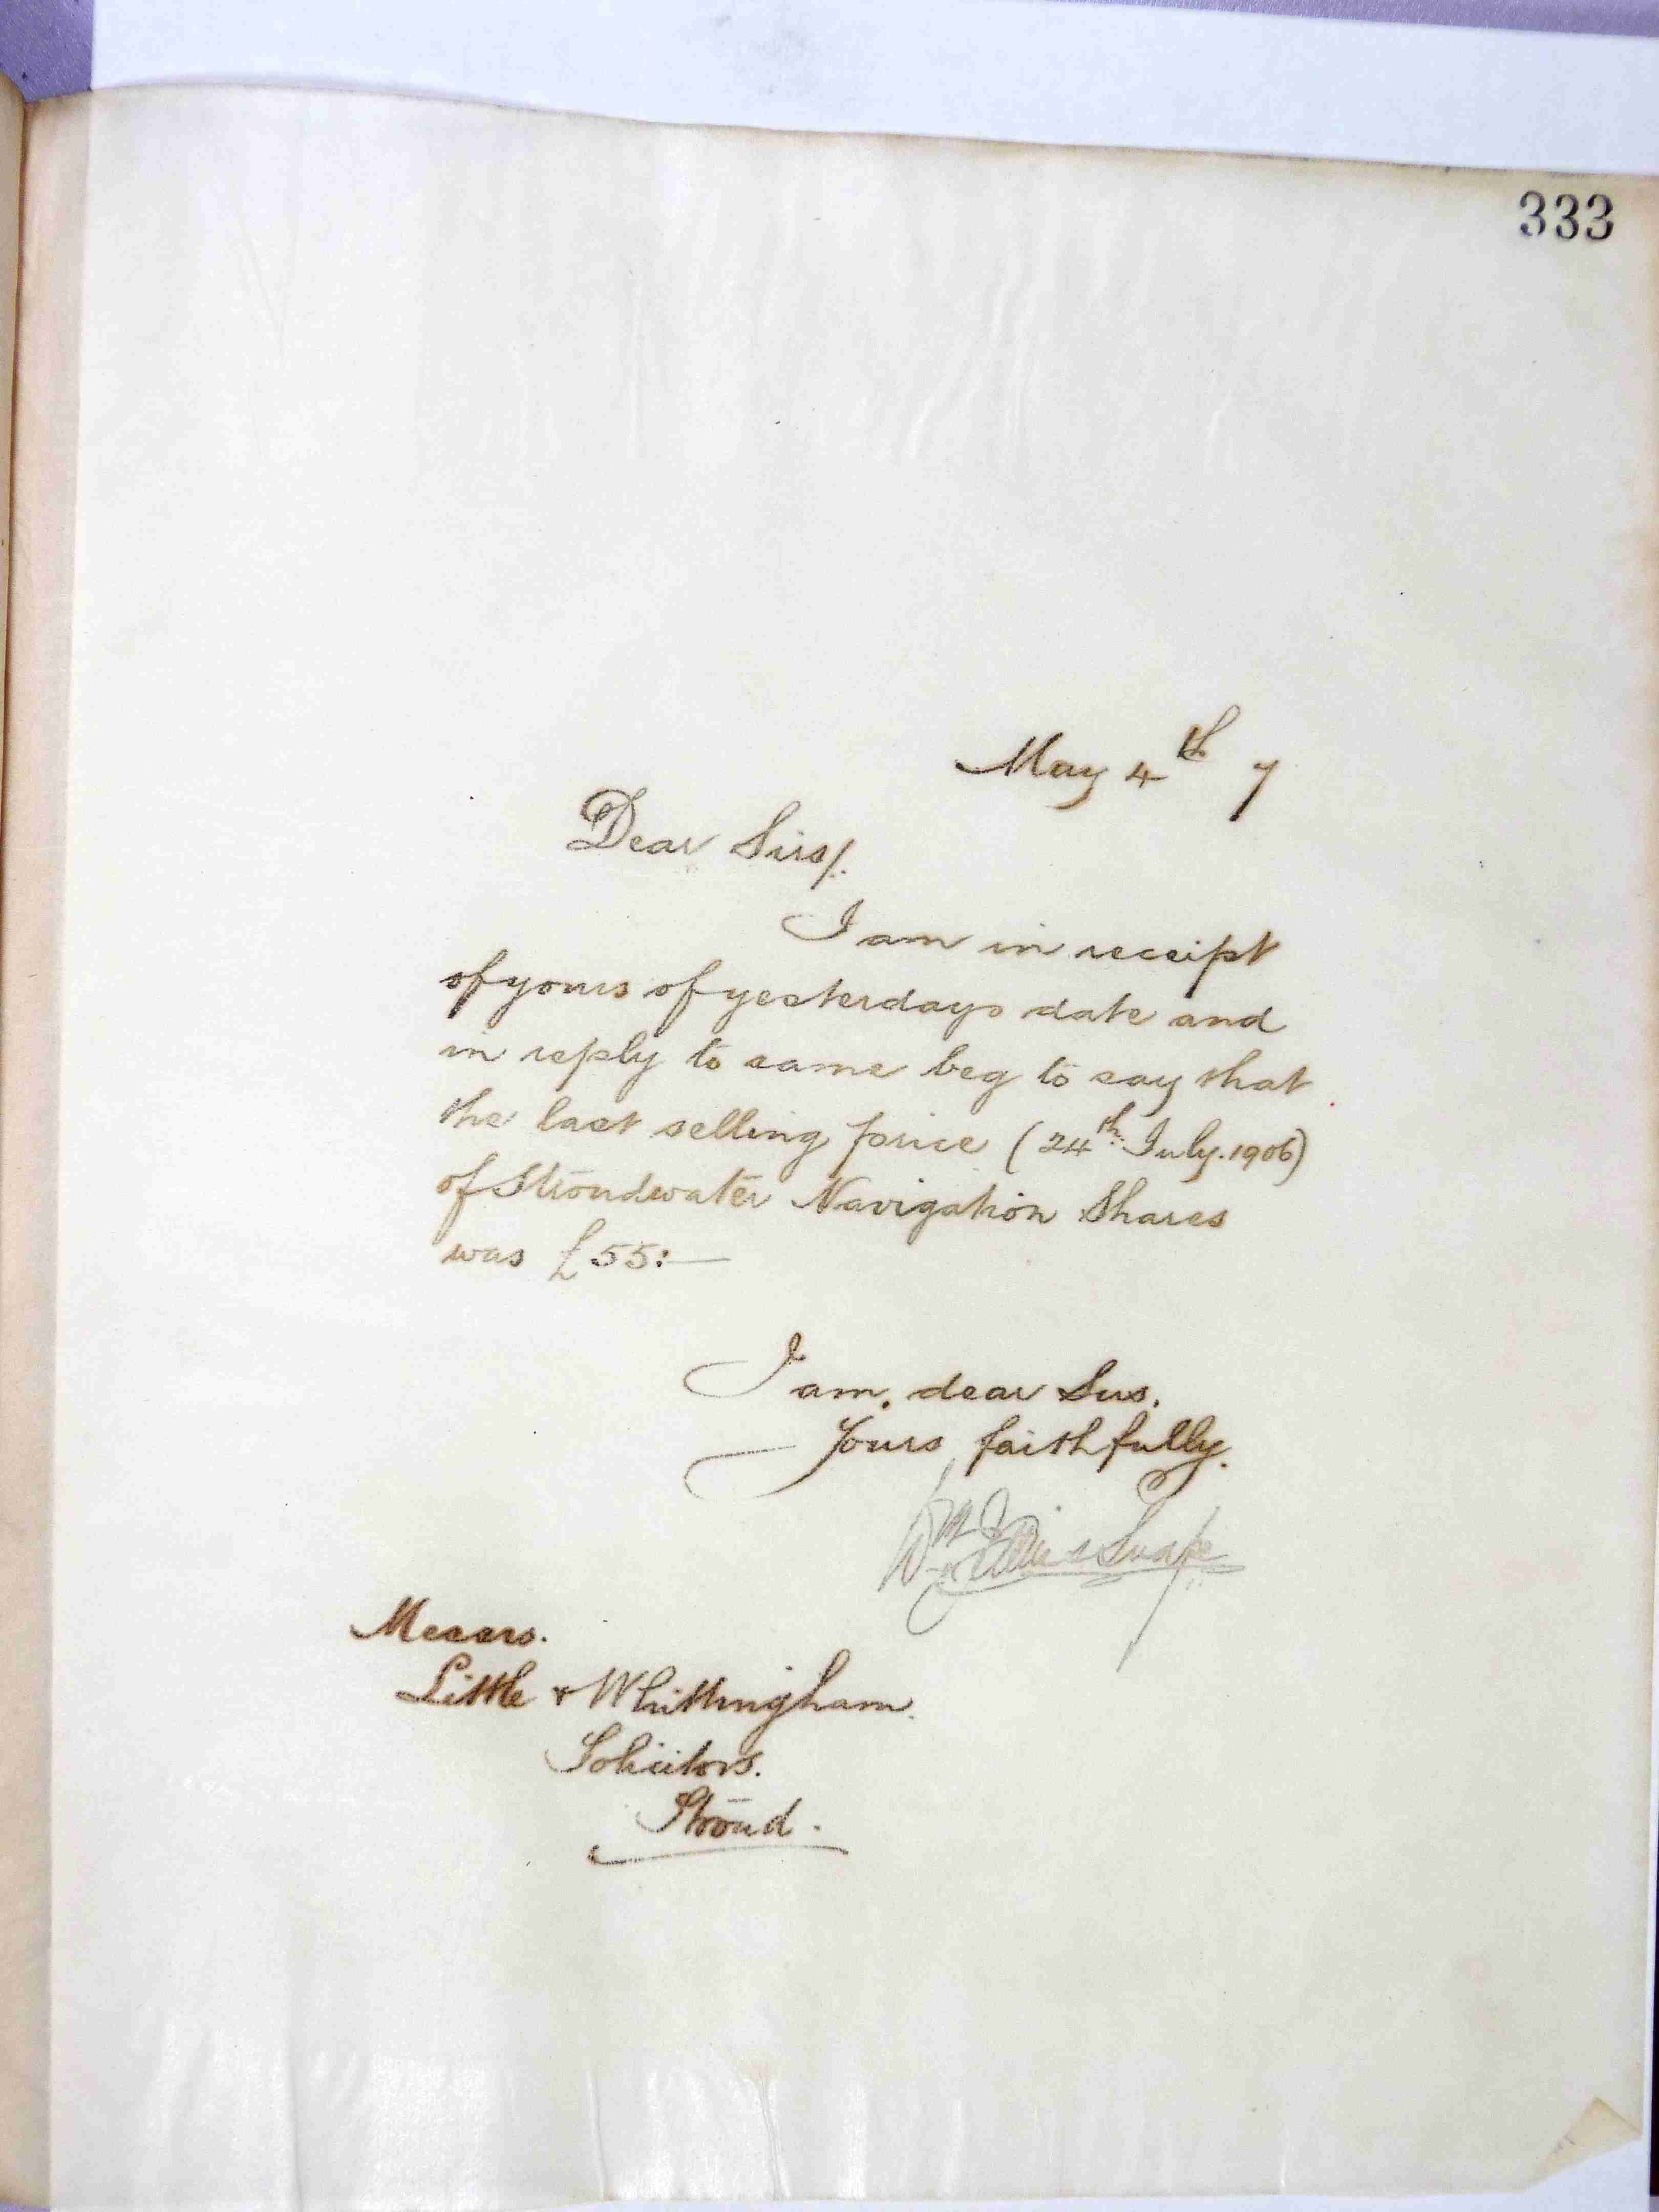 333
May 4th 7
Dear Sirs/.
I am in receipt
of yours of yesterdays date and
in reply to same beg to say that
the last selling price (24th July. 1906)
of Stroudwater Navigation Shares
was £55:—
I am, dear Sirs.
Yours faithfully.
Messrs.
Little & Whittingham.
Solicitors.
Stroud.